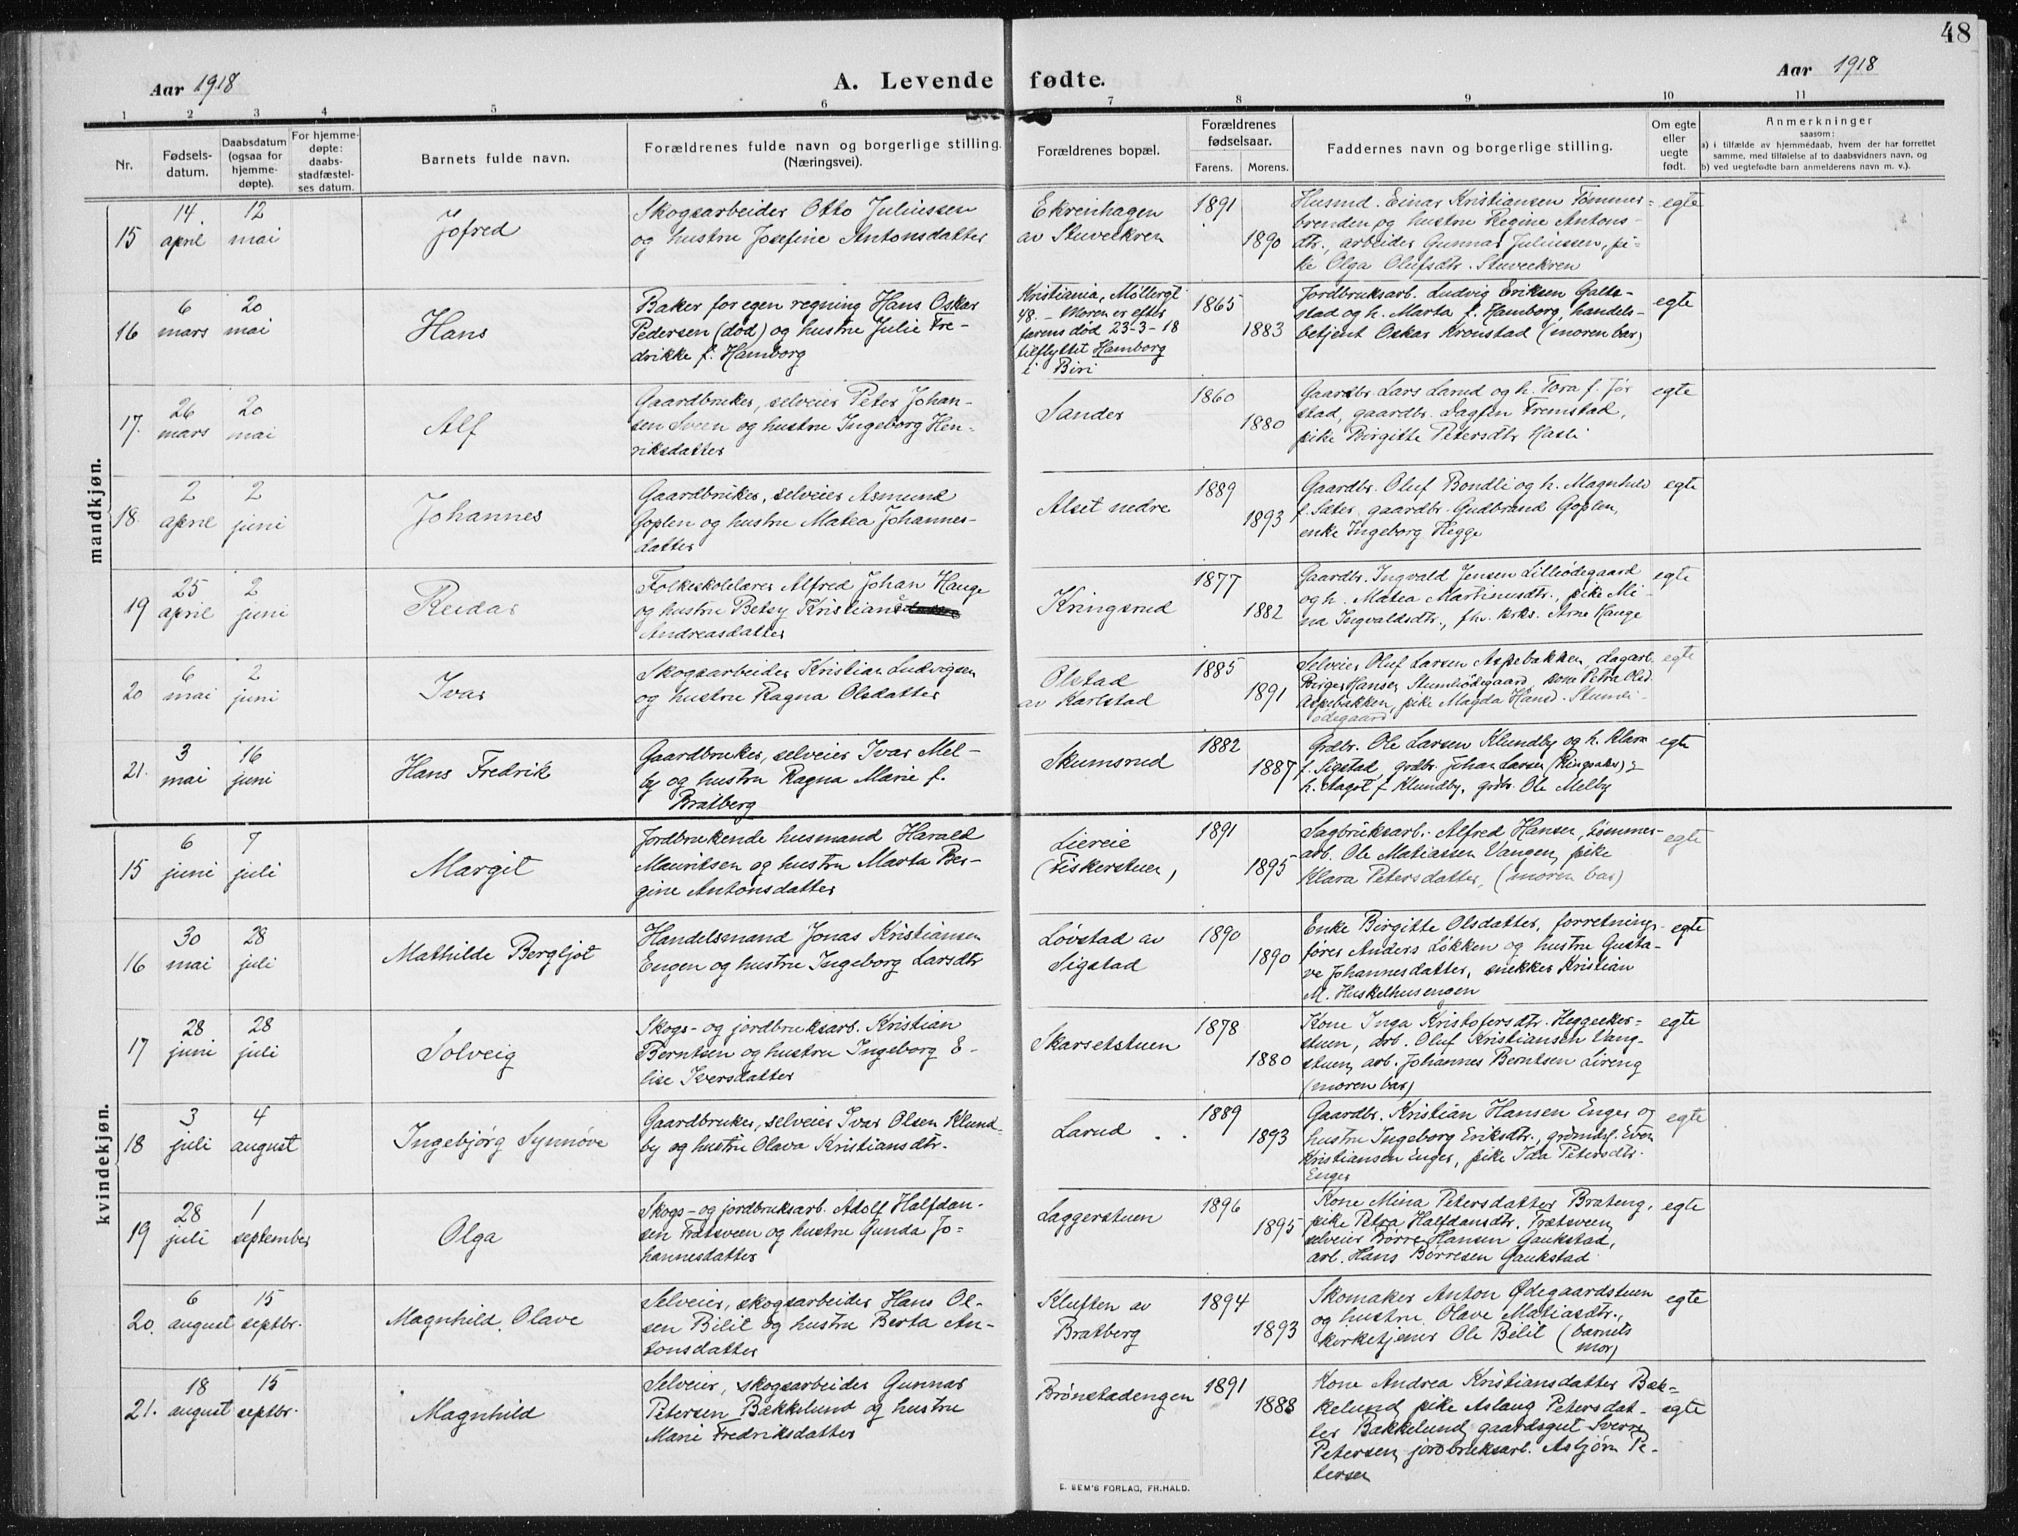 48
Aar 1918
A. Levende fødte.
Aar 1918
1 2 3 4 5 6 7 8 9 10 11
Nr.
Fødsels-
datum.
Daabsdatum
(ogsaa for
hjemme-
døpte).
For hjemme-
døpte:
daabs-
stadfæstel-
ses datum.
Barnets fulde navn.
Forældrenes fulde navn og borgerlige stilling.
(Næringsvei).
Forældrenes bopæl.
Forældrenes
fødselsaar.
Farens. Morens.
Faddernes navn og borgerlige stilling.
Om egte
eller
uegte
født.
Anmerkninger
saasom:
a) i tilfælde av hjemmedaab, hvem der har forrettet
samme, med tilføielse af to daabsvidners navn, og
b) ved uegtefødte barn anmelderens navn m. v.).
mandkjøn.
15
14
april
12
mai
Jofred
Skogsarbeider Otto Juliussen
og hustru Josefine Antonsdatter
Ekrenhagen
av Stuveekren
1891
1890
Husmd. Einar Kristiansen Tømmer-
brenden og hustru Regine Antons-
dtr., arbeider Gunnar Juliussen, pi-
ke Olga Olufsdtr. Stuveekren
egte
16
6
mars
20
mai
Hans
Baker for egen regning Hans Oskar
Pedersen (død) og hustru Julie Fre-
drikke f. Hamborg
Kristiania, Møllergt
48. - Moren er efter
farens død 23-3-18
tilflyttet Hamborg
i Biri
1865
1883
Jordbruksarb. Ludvig Eriksen Galte-
stad og h. Marta f. Hamborg, handels-
betjent Oskar Kronstad (moren bar)
egte
17.
26
mars
20
mai
Alf
Gaardbruker, selveier Peter Johan-
sen Sveen og hustru Ingeborg Hen-
riksdatter
Sander
1860
1880
Gaardbr. Lars Larud og h. Tora f. Jør
stad, gaardbr. Dagfin Fremstad,
pike Birgitte Petersdtr Hasli
egte
18.
2
april
2
juni
Johannes
Gaardbruker, selveier Asmund
Goplen og hustru Matea Johannes-
datter
Alset nedre
1889
1893
Gaardbr. Oluf Bondli og h. Magnhild
f. Sæter, gaardbr. Gudbrand Goplen,
enke Ingeborg Hegge
egte
19
25
april
2
juni
Reidar
Folkeskolelærer Alfred Johan Hauge
og hustru Betsy Kristians
Andreasdatter
Kringsrud
1877
1882
Gaardbr. Ingvald Jensen Lilleødegaard
og h. Matea Martinusdtr., pike Mi-
na Ingvaldsdtr., fhv. krks. Arne Hauge
egte
20
6
mai
2
juni
Ivar
Skogsarbeider Kristian Ludvigsen
og hustru Ragna Olsdatter
Olstad
av Karlstad
1885
1891
Selveier Oluf Larsen Aspebakken, dagarb.
Birger Hansen Stumliødegaard, kone Petra Olsd
Aspebakken, pike Magda Hansd. Stumli-
ødegaard
egte
21.
3
mai
16
juni
Hans Fredrik
Gaardbruker, selveier Ivar Mel-
by og hustru Ragna Marie f.
Bratberg
Skumsrud
1882
1887
Grdbr. Ole Larsen Klundby og h. Klara
f. Sigstad, grdbr. Johan Larsen Ringvaker og
h. Aagot f. Klundby, grdbr. Ole Melby
egte
kvindekjøn.
15
6
juni
7
juli
Margit
Jordbrukende husmand Harald
Mauritsen og hustru Marta Ber-
gine Antonsdatter
Liereie
(Fiskerstuen)
1891
1895
Sagbruksarb. Alfred Hansen, tømmer-
arb. Ole Matiassen Vangen, pike
Klara Petersdatter, (moren bar)
egte
16
30
mai
28
juli
Mathilde Bergljot
Handelsmand Jonas Kristiansen
Engen og hustru Ingeborg Larsdtr
Løvstad av
Sigstad
1890
1890
Enke Birgitte Olsdatter, forretnings-
fører Anders Løkken og hustru Gusta-
ve Johannesdatter, snekker Kristian
M. Huskelhusengen
egte
17
28
juni
28
juli
Solveig
Skogs- og jordbruksarb. Kristian
Berntsen og hustru Ingeborg E-
lise Iversdatter
Skarsetstuen
1878
1880
Kone Inga Kristofersdtr. Heggeeker-
stuen, arb. Oluf Kristiansen Vang-
stuen, arb. Johannes Berntsen Lireng
(moren bar)
egte
18
3
juli
4
august
Ingebjørg Synnøve
Gaardbruker, selveier Ivar Olsen Klund-
by og hustru Olava Kristiansdtr.
Larud
1889
1893
Gaardbr. Kristian Hansen Enger og
hustru Ingeborg Eriksdtr., grdmdsf. Even
Kristiansen Enger, pike Ida Petersdtr.
Enger
egte
19
28
juli
1
september
Olga
Skogs- og jordbruksarb. Adolf Halfdan-
sen Trætsveen og hustru Gunda Jo-
hannesdatter
Laggerstuen
1896
1895
Kone Mina Petersdatter Brateng,
pike Petra Halfdansdtr. Trætsveen,
selveier Børre Hansen Gaukstad,
arb. Hans Børresen Gaukstad
egte
20.
6
august
15
septbr.
Magnhild Olave
Selveier, skogsarbeider Hans Ol-
sen Bilit og hustru Berta An-
tonsdatter
Kluften av
Bratberg
1894
1893
Skomaker Anton Ødegaardstuen
og hustru Olave Matiasdtr.,
kirketjener Ole Bilit (barnets
mor)
egte
21.
18
august
15
septbr.
Magnhild
Selveier, skogsarbeider Gunnar
Petersen Bækkelund og hustru
Marie Fredriksdatter
Brønstadengen
1891
1888
Kone Andrea Kristiansdatter Bæk-
kelund, pike Aslaug Petersdat-
ter Bækkelund, gaardsgut Sverre
Petersen, jordbruksarb. Asbjørn Pe-
tersen
egte
E. SEM'S FORLAG, FR.HALD.